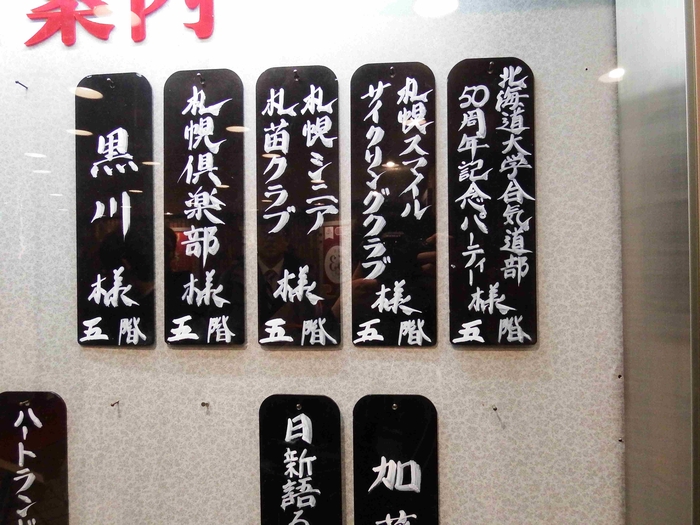 案内
北海道大学合気道部
50周年記念パーティー
様
五階
札幌スマイル
サイクリングクラブ
様
五階
札幌シニア
札苗クラブ
様
五階
札幌倶楽部
様
五階
黒川
様
五階
加
日新語る
ハートランド